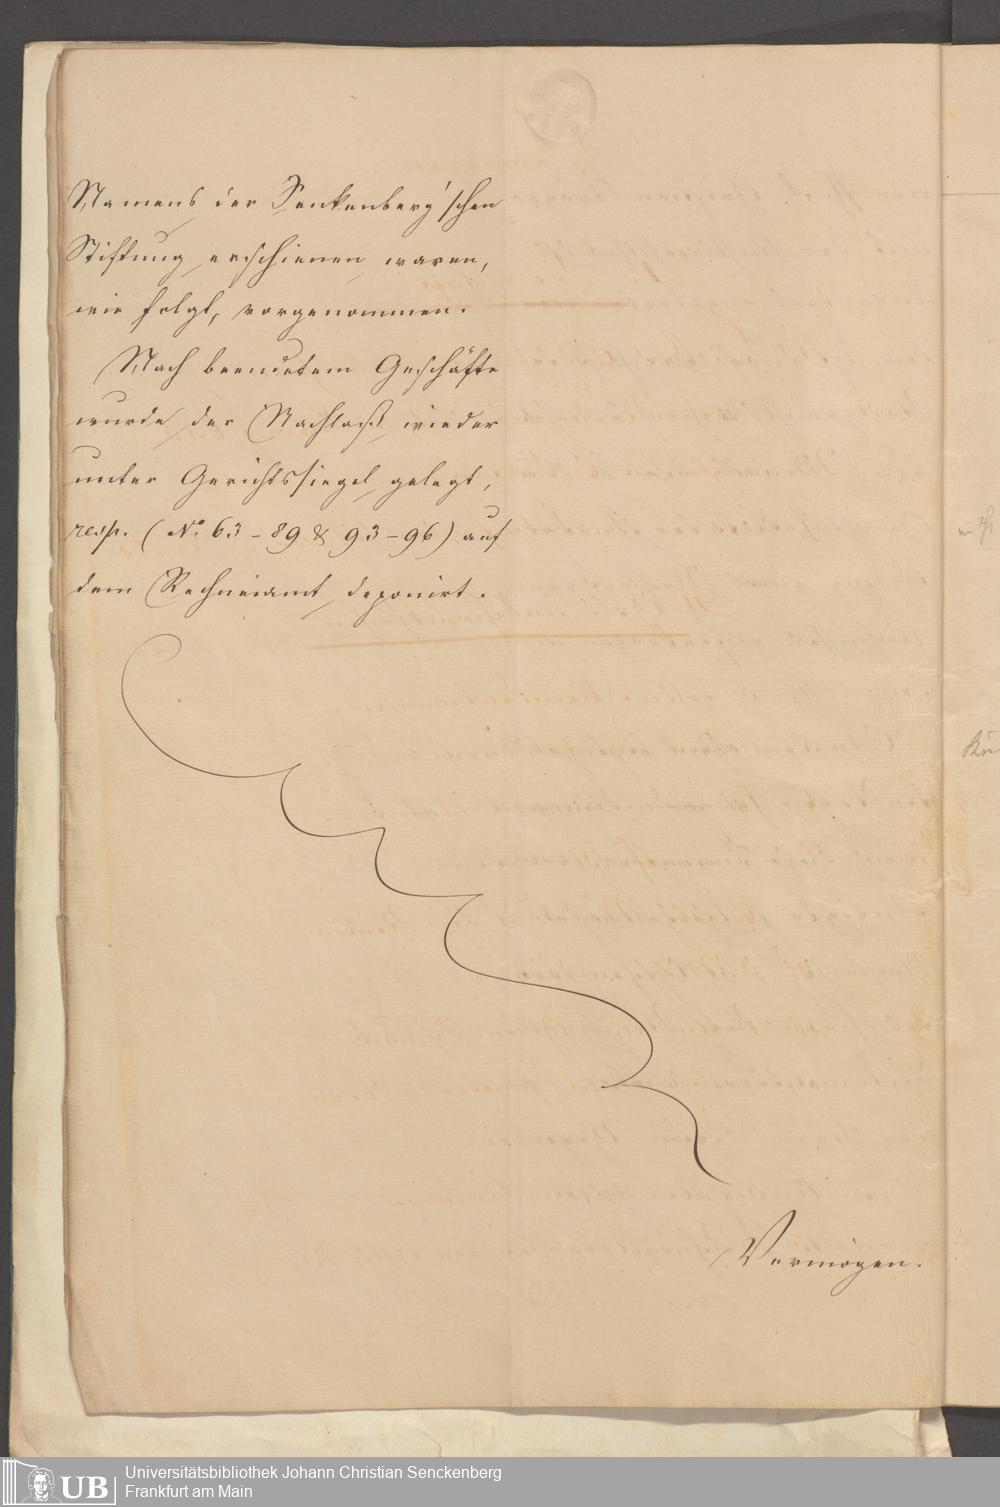 Namens der Senkenberg'schen
Stiftung erschienen waren,
wie folgt, vorgenommen.
Nach beendetem Geschäfte
wurde der Nachlaß wieder
unter Gerichtssiegel gelegt,
resp. (No. 63-89 & 93-96) auf
dem Rechneiamt deponirt.
Vermögen.
UB Universitätsbibliothek Johann Christian Senckenberg
Frankfurt am Main